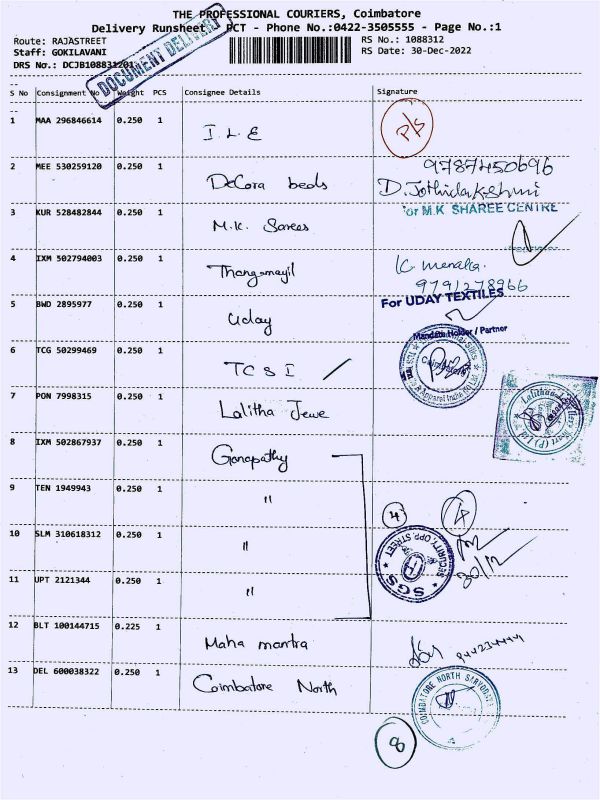 THE PROFESSIONAL COURIERS, Coimbatore
Delivery Runsheet PCT - Phone No.:0422-3505555 - Page No.:1
Route: RAJASTREET
RS No.: 1088312
Staff: GOKILAVANI
RS Date: 30-Dec-2022
DRS No.: DCJB108831201
DOCUMENT DELIVERY
S No Consignment No Weight PCS Consignee Details Signature
1 MAA 296846614 0.250 1 I.L.E P/S
2 MEE 530259120 0.250 1 DeCora beds 9787450696
D. Jothilakshmi
3 KUR 528482844 0.250 1 M.K. Sarees For M.K SHAREE CENTRE
4 IXM 502794003 0.250 1 Thangamayil K. menaka.
9791278966
5 BWD 2895977 0.250 1 Uday For UDAY TEXTILES
Mandate Holder / Partner
6 TCG 50299469 0.250 1 TCSI /
7 PON 7998315 0.250 1 Lalitha Jewe
8 IXM 502867937 0.250 1 Ganapathy
9 TEN 1949943 0.250 1 "
4
10 SLM 310618312 0.250 1 "
SGS SECURITY, OPP. STREET
30/12
11 UPT 2121344 0.250 1 "
12 BLT 100144715 0.225 1 Maha mantra
13 DEL 600038322 0.250 1 Coimbatore North
COIMBATORE NORTH SARVODAYA
8